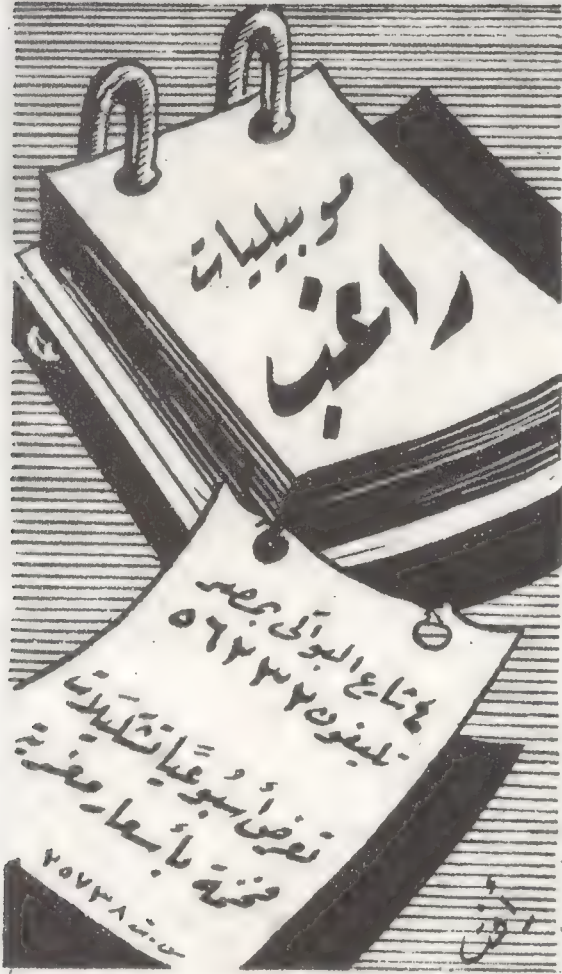 موبيليات
راغب
٤ شارع البواكى بمصر
تليفون ٥٦٢٣٢
تعرض أسبوعيا تشكيلات
فخمة بأسعار مغرية
س.ت ٢٥٧٣٨